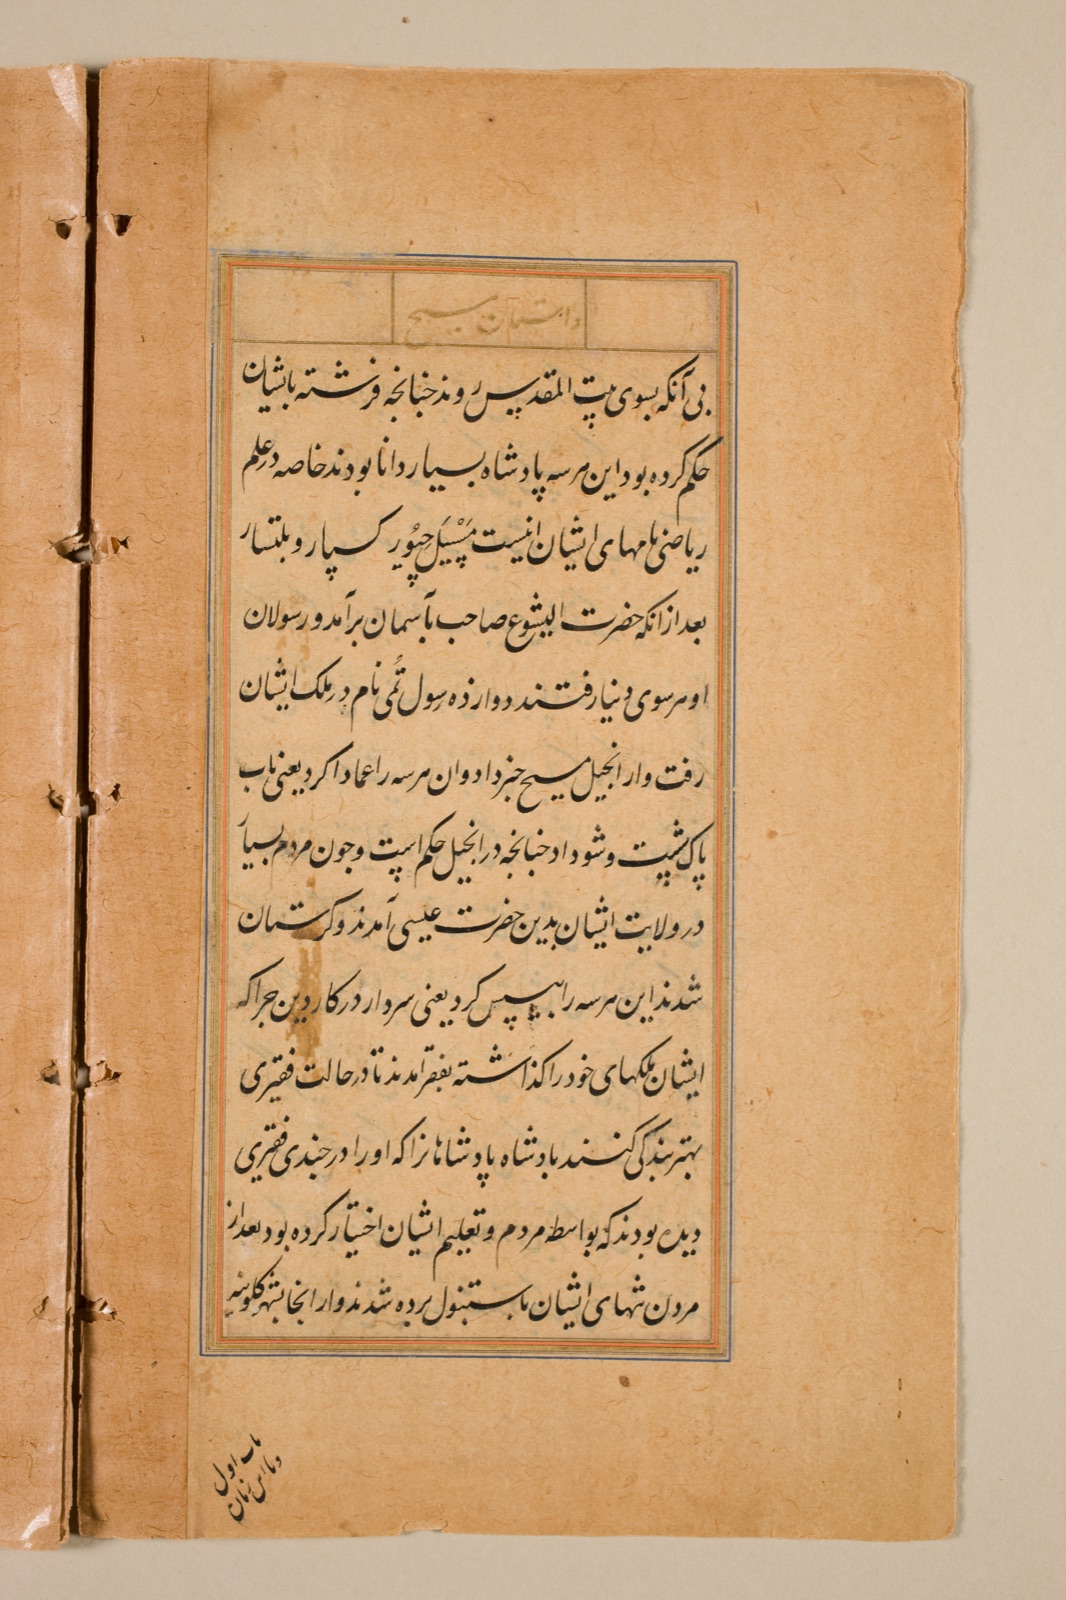 داستان مسیح
بی آنکه بسوی بیت المقدس روند چنانچه فرشته بایشان
حکم کرده بود این هر سه پادشاه بسیار دانا بودند خاصه در علم
ریاضی نامهای ایشان اینست مِسْیَل چیُور کسپار و بلتسار
بعد از انکه حضرت الیشوع صاحب بآسمان برآمد و رسولان
او هر سوی دنیا رفتند دوازده رسول تُمی نام در ملک ایشان
رفت و از انجیل مسیح خبر داد و ان هر سه را عمادا کرد یعنی باب
پاک شست و شو داد چنانچه در انجیل حکم است و چون مردم بسیار
در ولایت ایشان بدین حضرت عیسی آمدند و کرستان
شدند این هر سه را بیسپس کرد یعنی سردار در کار دین چراکه
ایشان ملکهای خود را کذاشته بفقر امدند تا در حالت فقیری
بهتر بندکی کنند پادشاه پادشاهانرا که او را در چندی فقیری
دیده بودند که بواسطه مردم و تعلیم ایشان اختیار کرده بود بعد از
مردن تنهای ایشان باستنبول برده شدند و از انجا بشهر کلونیه
باب اول